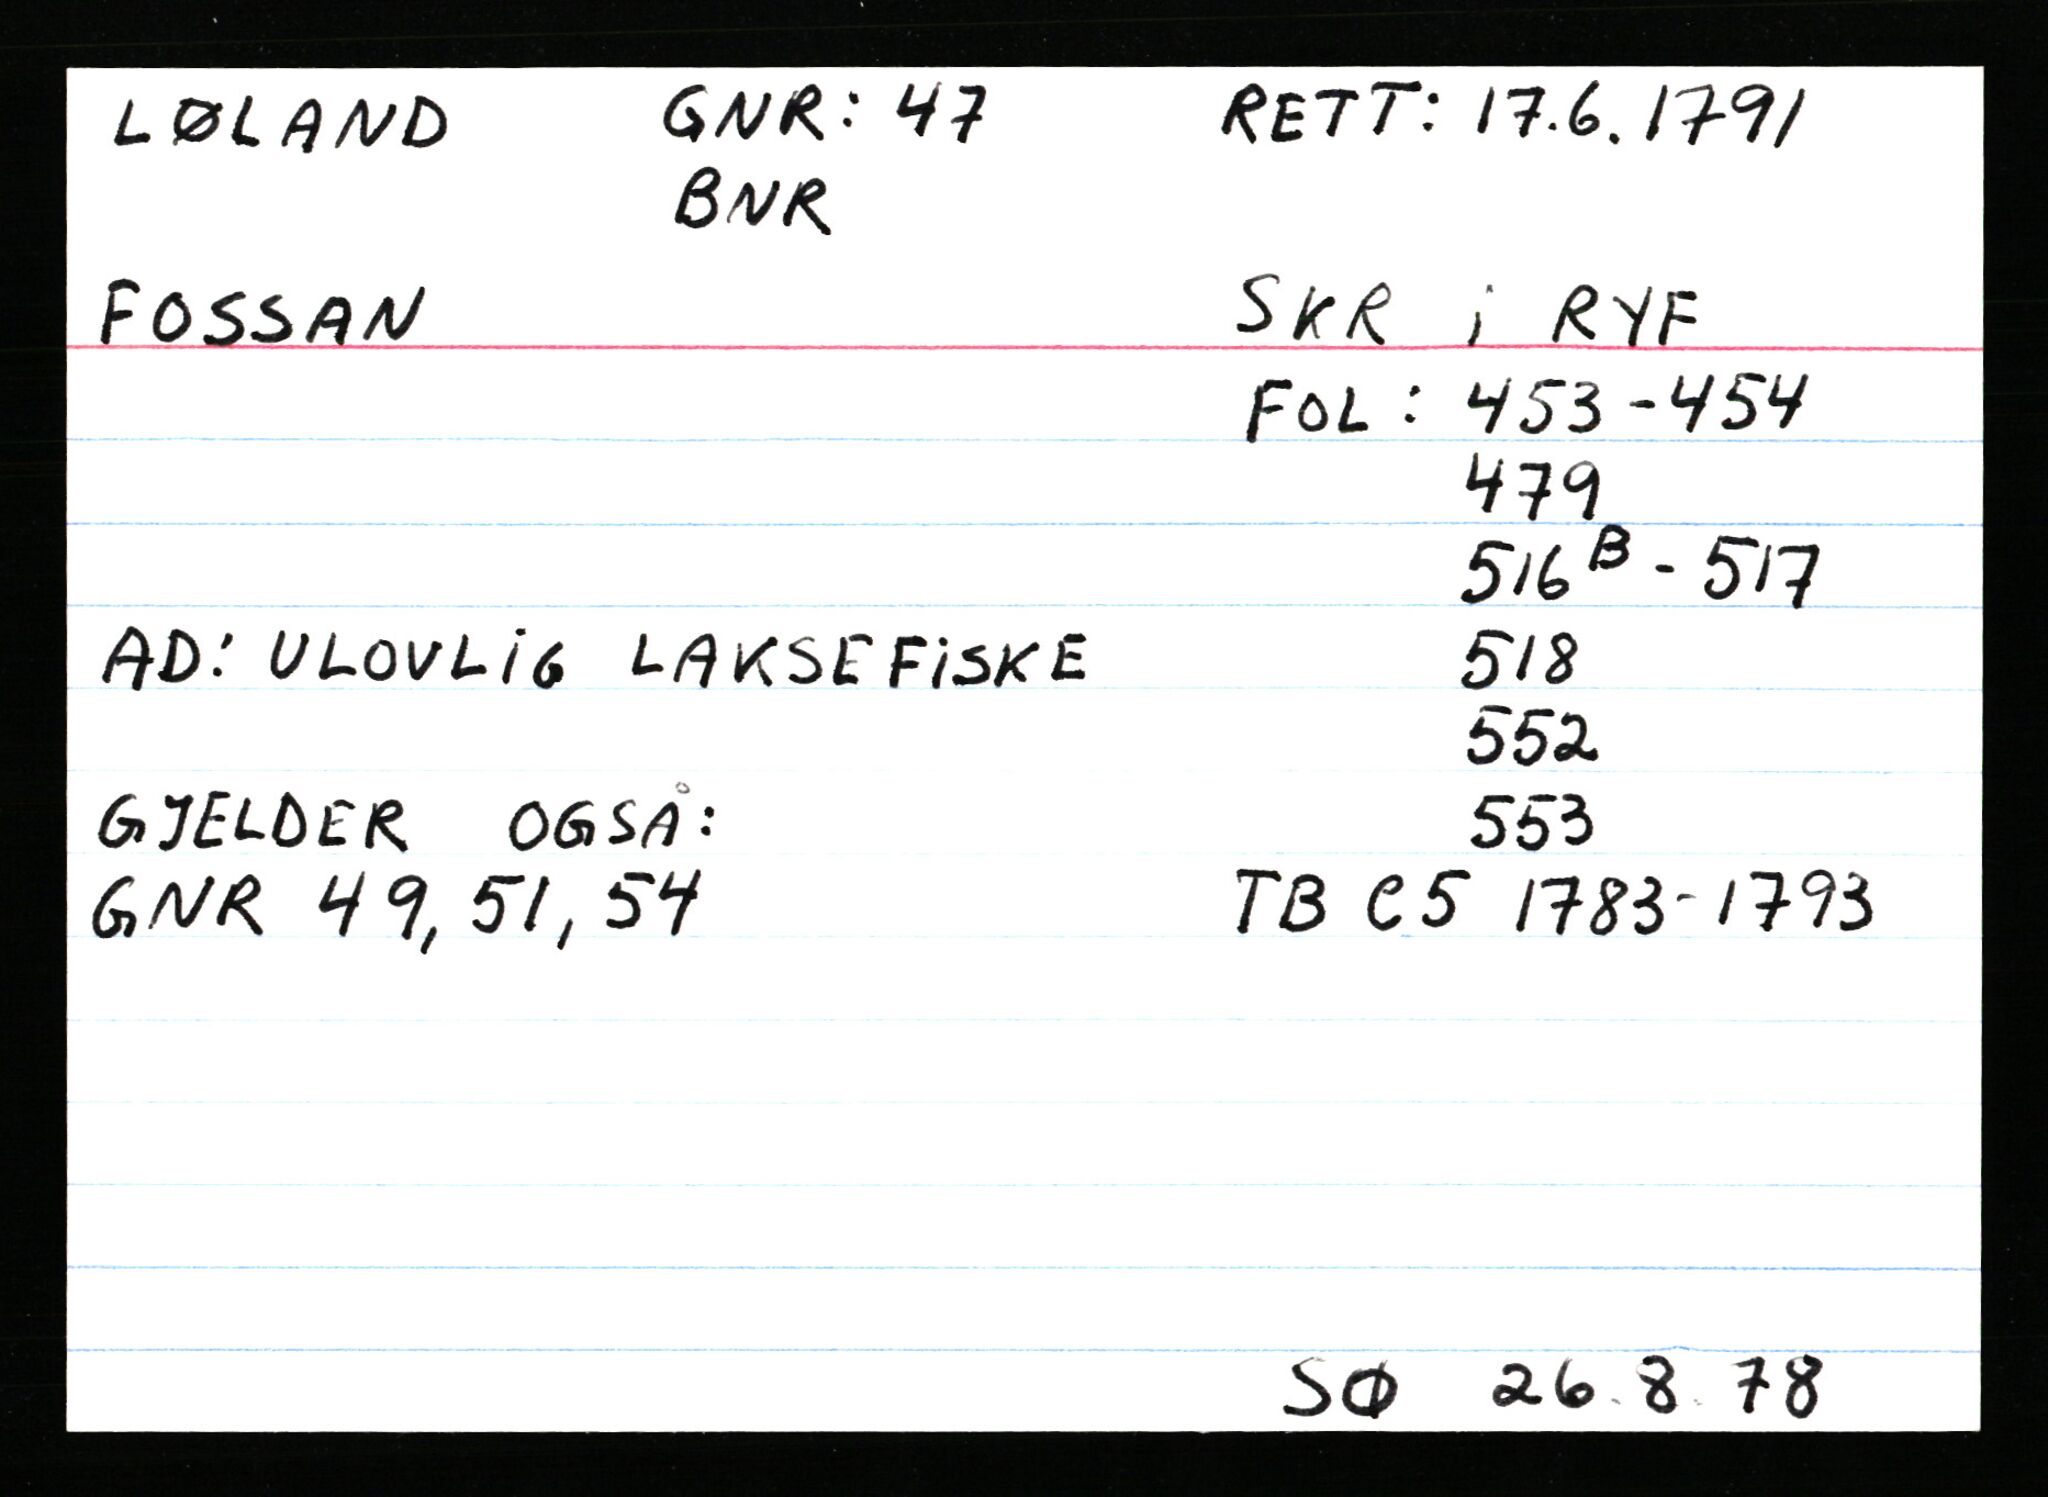 LØLAND GNR: 47 RETT: 17.6.1791
BNR
FOSSAN SKR i RYF
FOL: 453-454
479
516B - 517
AD: ULOVLiG LAKSEFiSKE 518
552
GJELDER OGSÅ: 553
GNR 49, 51, 54 TB C5 1783-1793
SØ 26.8.78